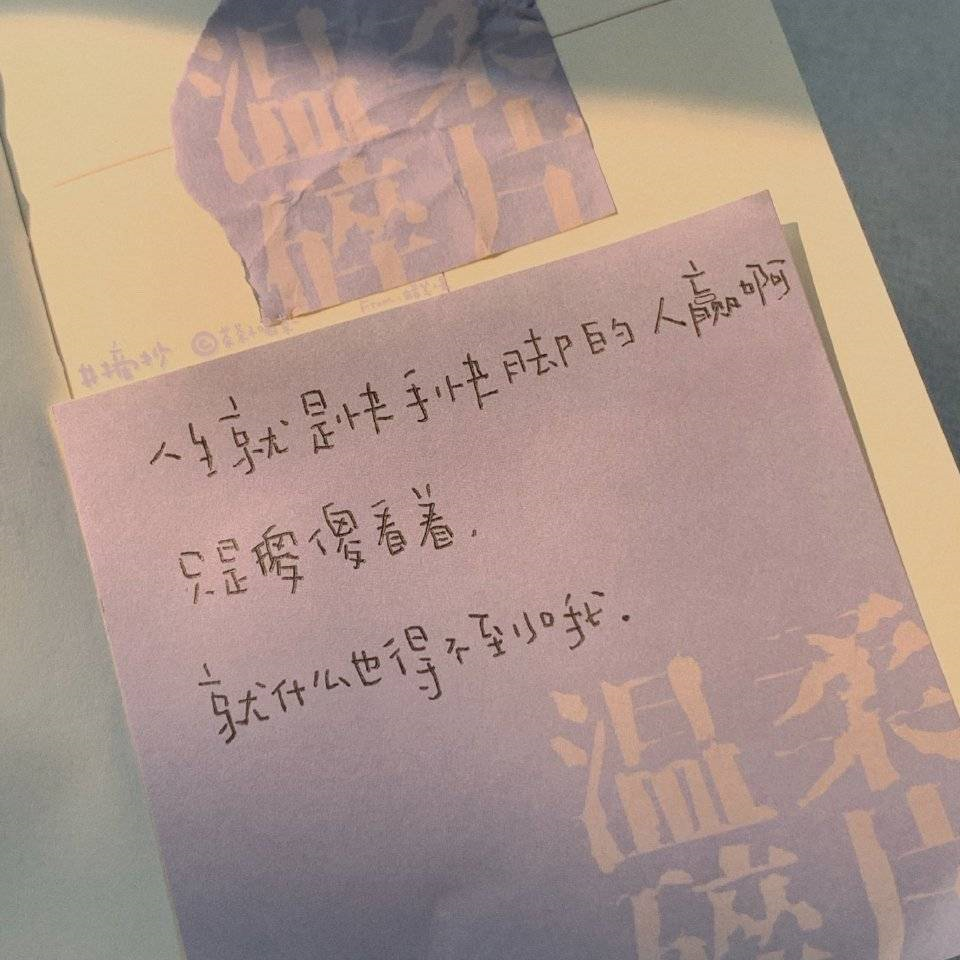 温柔
碎片
#摘抄
From:
人生就是快手快脚的人赢啊
只是傻傻看着,
就什么也得不到哦.
温柔
碎片